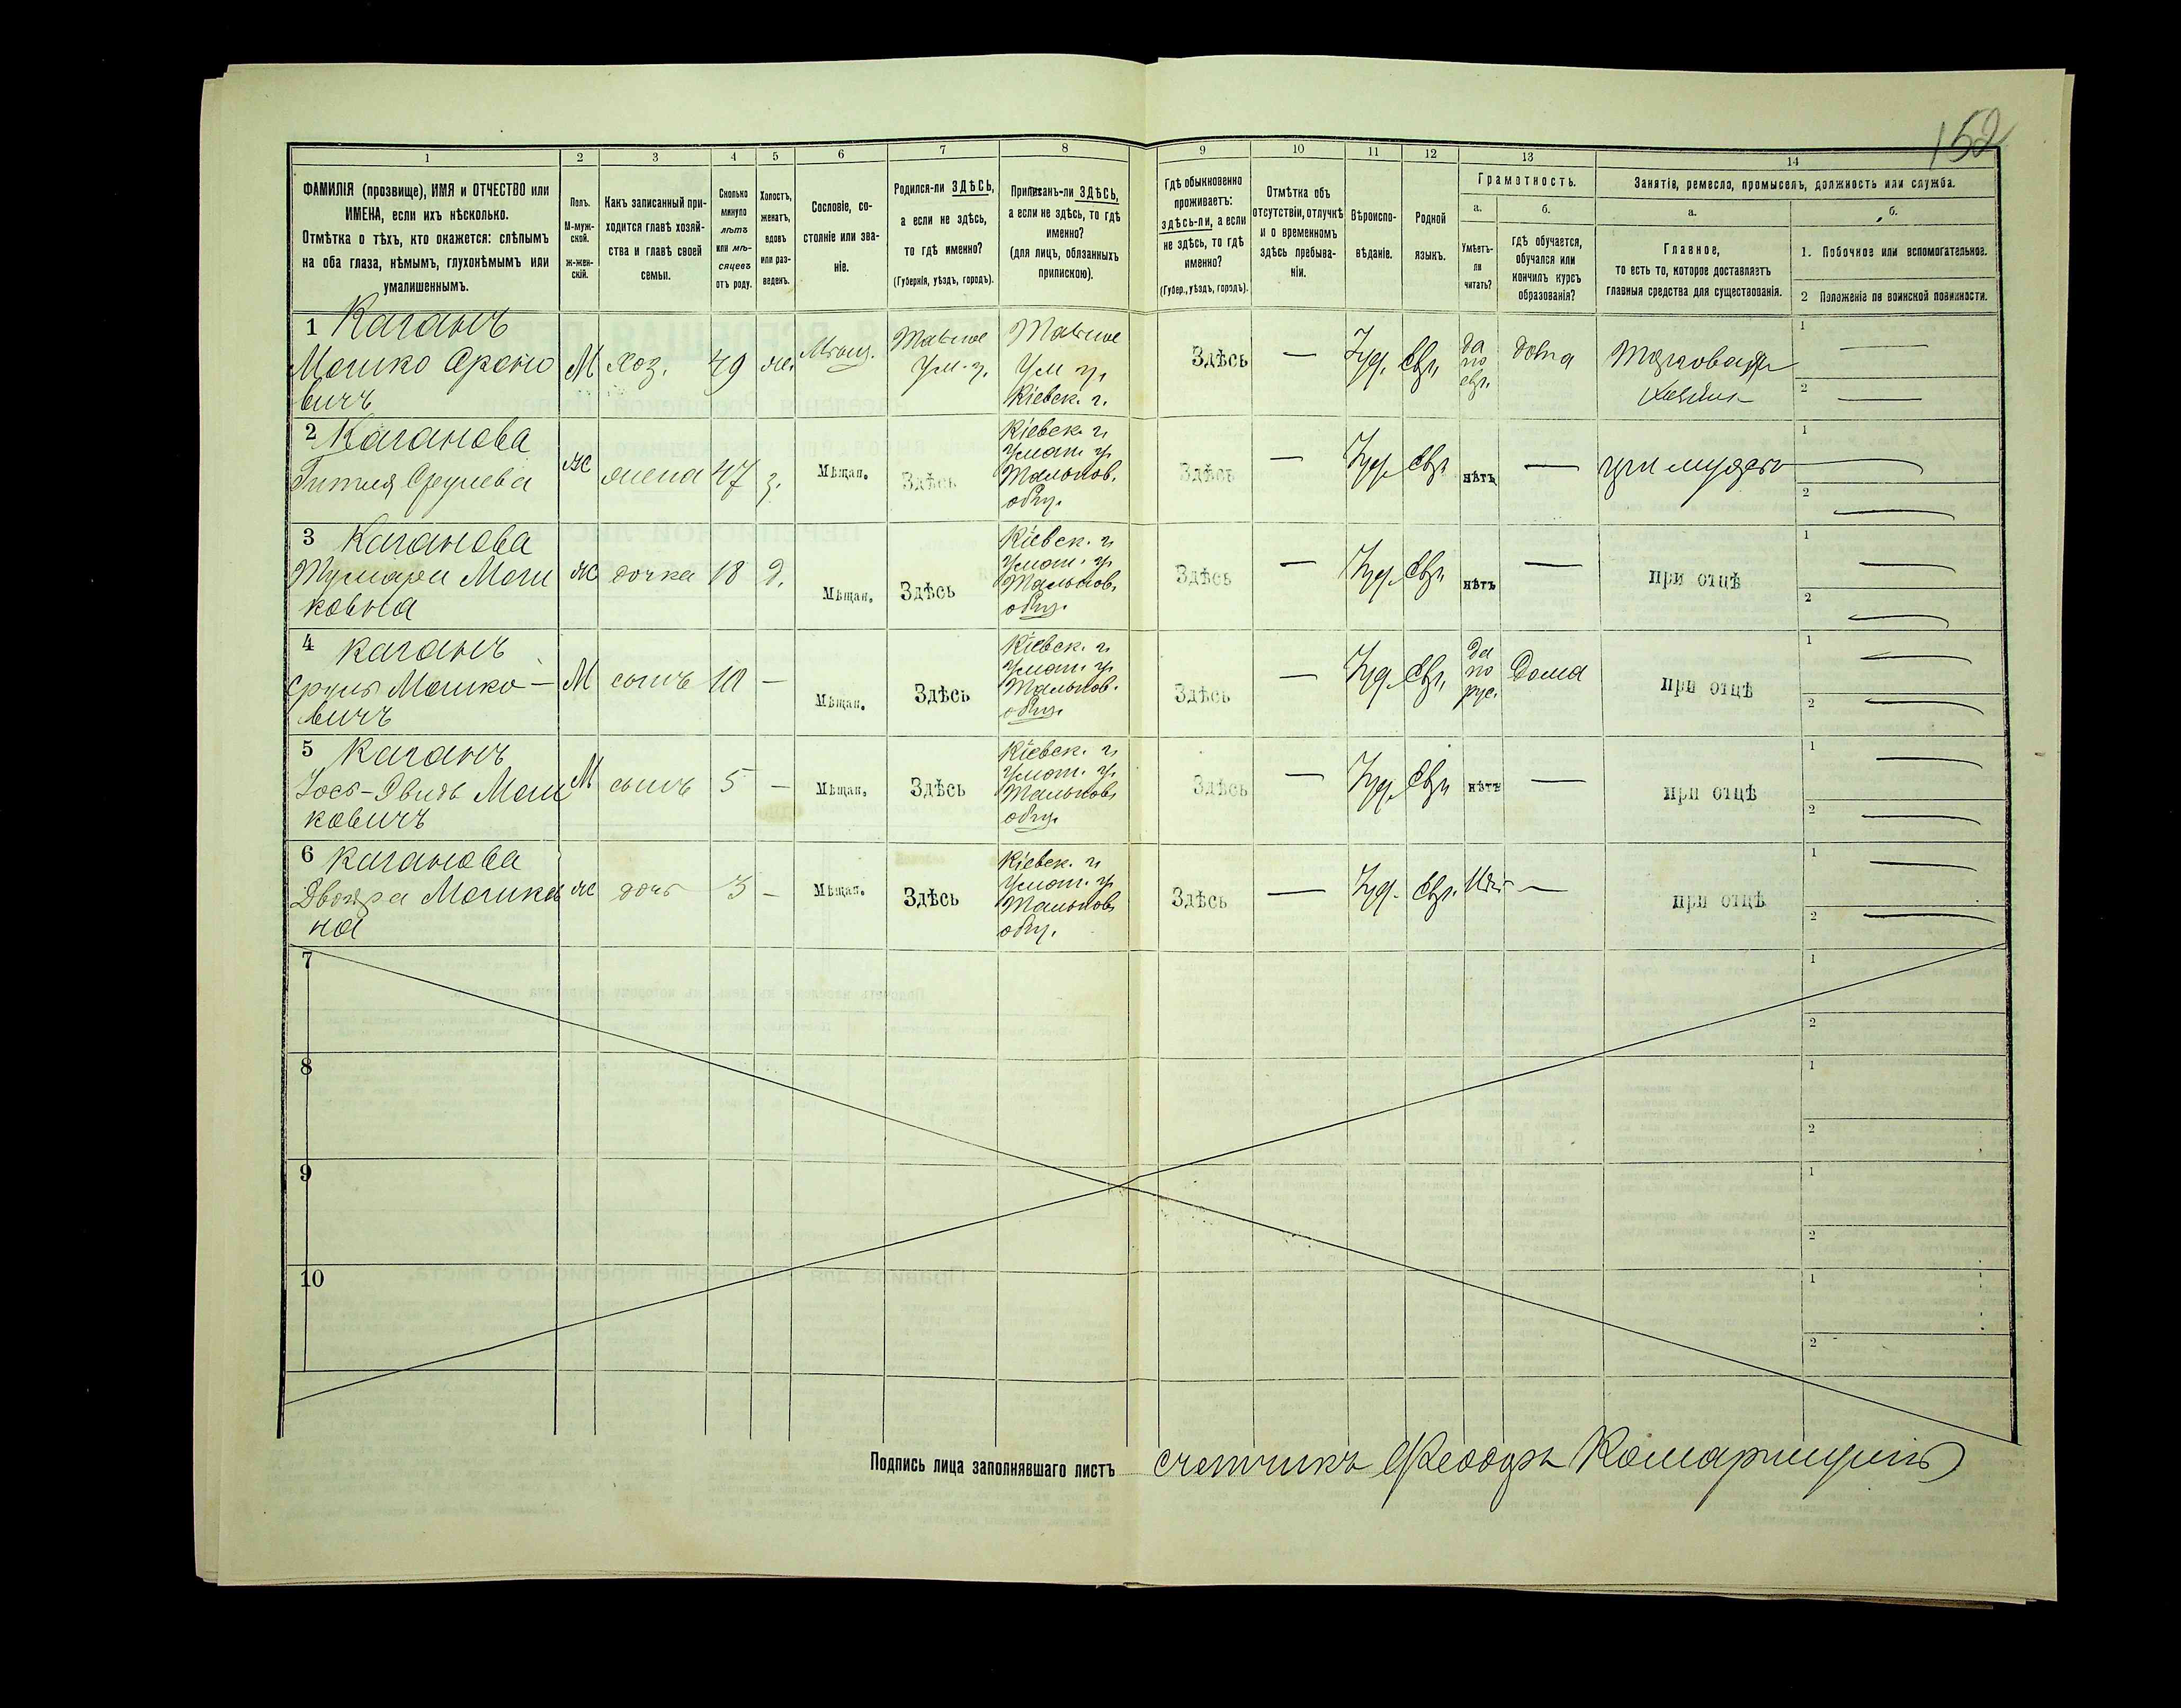 152
1 2 3 4 5 6 7 8 9 10 11 12 13 14
ФАМИЛІЯ (прозвище), ИМЯ и ОТЧЕСТВО или
ИМЕНА, если ихъ нѣсколько.
Отмѣтка о тѣхъ, кто окажется: слѣпымъ
на оба глаза, нѣмымъ, глухонѣмымъ или
умалишеннымъ.
Полъ.
М-муж-
ской.
Ж-жен-
скій.
Какъ записанный при-
ходится главѣ хозяй-
ства и главѣ своей
семьи.
Сколько
минуло
лѣтъ
или мѣ-
сяцевъ
отъ роду.
Холостъ,
женатъ,
вдовъ
или раз-
веденъ.
Сословіе, со-
стояніе или зва-
ніе.
Родился-ли ЗДѢСЬ,
а если не здѣсь,
то гдѣ именно?
(Губернія, уѣздъ, городъ).
Приписанъ-ли ЗДѢСЬ,
а если не здѣсь, то гдѣ
именно?
(для лицъ, обязанныхъ
припискою).
Гдѣ обыкновенно
проживаетъ:
здѣсь-ли, а если
не здѣсь, то гдѣ
именно?
(Губер., уѣздъ, городъ).
Отмѣтка объ
отсутствіи, отлучкѣ
и о временномъ
здѣсь пребыва-
ніи.
Вѣроиспо-
вѣданіе.
Родной
языкъ.
Грамотность.
а.
Умѣетъ-
ли
читать?
б.
гдѣ обучается,
обучался или
кончилъ курсъ
образованія?
Занятіе, ремесло, промыселъ, должность или служба.
а.
Главное,
то есть то, которое доставляетъ
главныя средства для существованія.
б.
1. Побочное или вспомогательное.
2 Положеніе по воинской повинности.
1 Каганъ
Мошко Ароно
вичъ
М
хоз.
49
ж.
Мѣщ.
Тальное
Ум. у.
Тальное
Ум у.
Кіевск. г.
Здѣсь
—
Іуд.
Евр.
да
по
евр.
дома
1 —
2 —
2 Каганова
Ж
жена
47
з.
Мѣщан.
Здѣсь
Кіевск. г.
Уман. у.
Тальнов.
общ.
Здѣсь
—
Іуд.
Евр.
нѣтъ
—
при мужѣ
1 —
2 —
3 Каганова
Мош
ковна
Ж
дочка
18
д.
Мѣщан.
Здѣсь
Кіевск. г.
Уман. у.
Тальнов.
общ.
Здѣсь
—
Іуд.
Евр.
нѣтъ
—
при отцѣ
1 —
2 —
4 Каганъ
Сруль Мошко-
вичъ
М
сынъ
10
—
Мѣщан.
Здѣсь
Кіевск. г.
Уман. у.
Тальнов.
общ.
Здѣсь
—
Іуд.
Евр.
да
по
рус.
Дома
при отцѣ
1 —
2 —
5 Каганъ
Іось-Двидъ Мош
ковичъ
М
сынъ
5
—
Мѣщан.
Здѣсь
Кіевск. г.
Уман. у.
Тальнов.
общ.
Здѣсь
—
Іуд.
Евр.
нѣтъ
—
при отцѣ
1 —
2 —
6 Каганова
Двойра Мошков
на
Ж
дочь
3
—
Мѣщан.
Здѣсь
Кіевск. г.
Уман. у.
Тальнов.
общ.
Здѣсь
—
Іуд.
Евр.
Нѣт
—
при отцѣ
1 —
2 —
7
1
2
8
1
2
9
1
2
10
1
2
Подпись лица заполнявшаго листъ счетчикъ Феодоръ